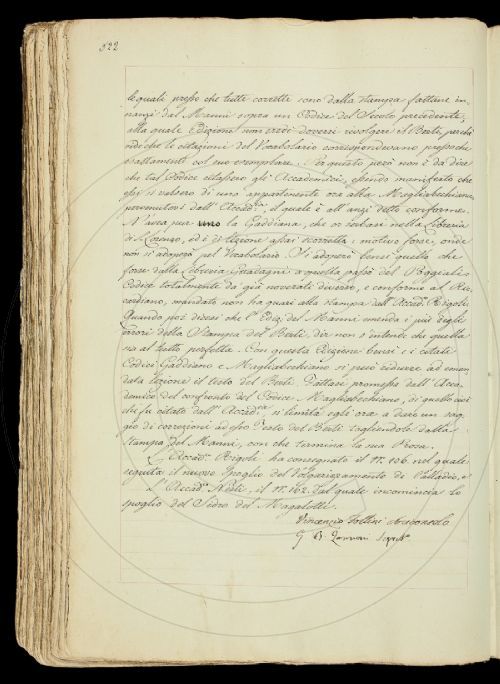 522
le quali presso che tutte corrette sono dalla stampa fattane in-
nanzi dal Manni sopra un Codice del Secolo precedente,
alla quale Edizione non credè doversi rivolgere il Berti, perchè
vide che le citazioni del Vocabolario corrispondevano presso che
esattamente col suo esemplare. Per questo però non è da dire
che tal Codice citassero gli Accademici, essendo manifesto che
essi si valsero di uno appartenente ora alla Magliabechiana
dell' Accad.co il quale è all' anzi detto conforme.
V' avea pur uno la Gaddiana, che or serbasi nella Libreria
di S. Lorenzo, ed è di lezione assai scorretta: motivo forse, onde
non si adoperò pel Vocabolario. Vi si adoperò bensì quello che
forse dalla Libreria Guadagni passò del Poggiali
Codice totalmente da già noverati diverso, e conforme al Ric-
cardiano, mandato non ha guari alla stampa dall' Accad.co Rigoli.
Quando poi dicesi che l' Ediz. del Manni emenda i più degli
errori della Stampa del Berti, dir non s' intende che quella
sia al tutto perfetta. Con questa Edizione bensì e i citati
Codici Gaddiano e Magliabechiano si può ridurre ad emen-
data lezione il testo del Berti. Fattasi promessa dall' Acca-
demico del confronto del Codice Magliabechiano, di quello cioè
che fu citato dall' Accad.a si limita egli ora a dare un sag-
gio di correzioni ad esso Testo del Berti togliendole dalla
Stampa del Manni, con che termina la sua Prosa.
L' Accad.co Rigoli ha consegnato il N. 106. nel quale
seguita il nuovo Spoglio del Volgarizzamento di Palladio, e
L' Accad.co il N. 162. dal quale incomincia lo
spoglio del Sidro del Magalotti.
Vincenzio Follini Arciconsolo
G. B. Zannoni Segret.o